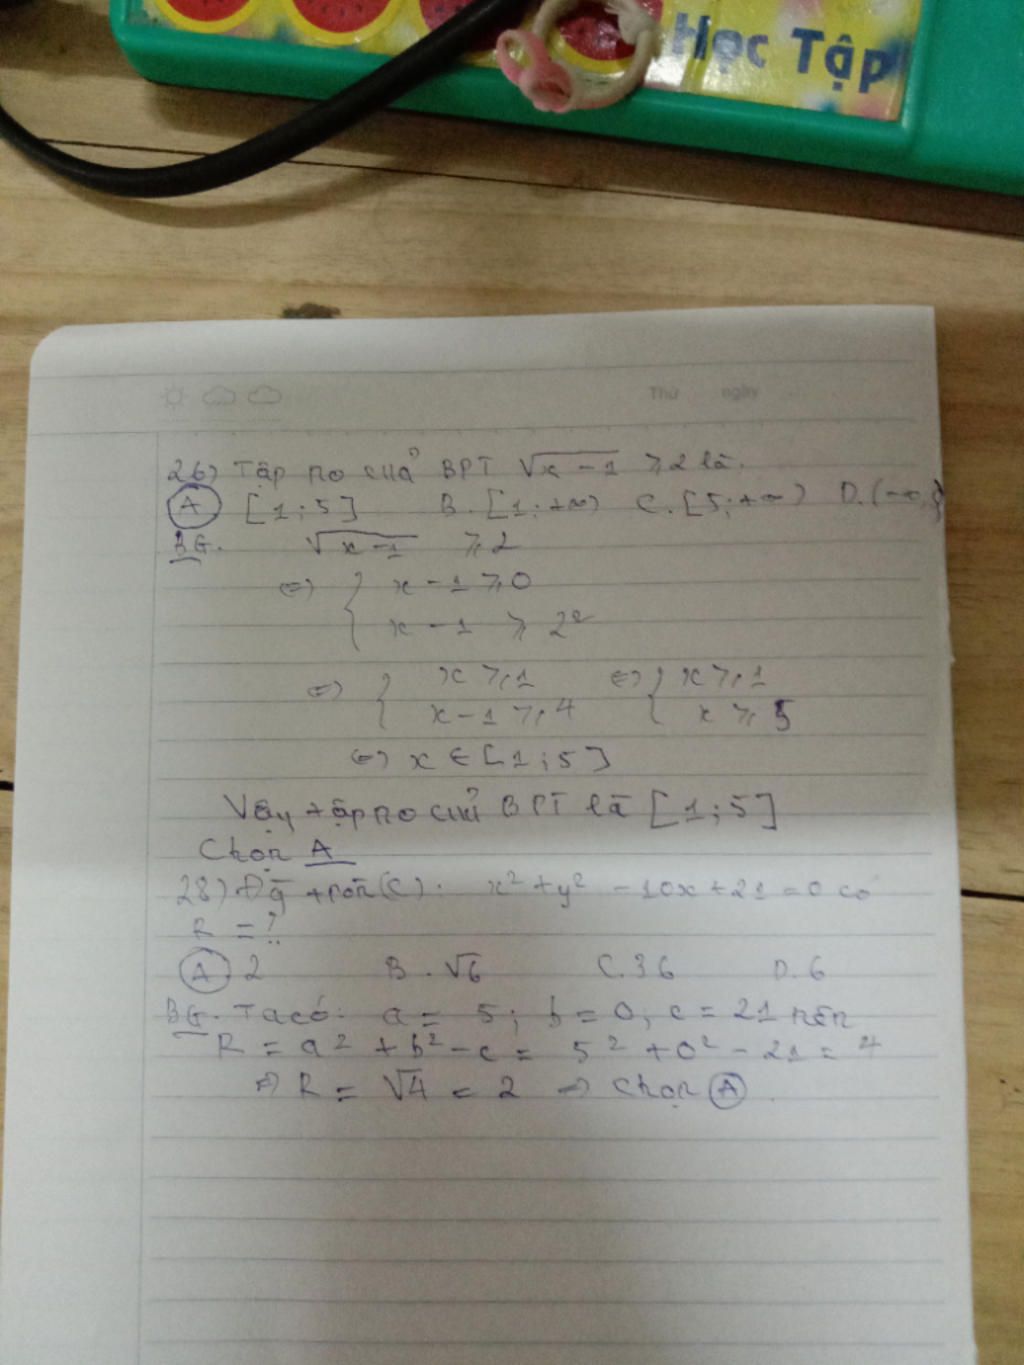 Học Tập
Thứ ngày
26) Tập no củả BPT √x-1 ⩾2 là.
A [1;5] B.[1;+∞) C.[5;+∞) D.(-∞;
BG. √x-1 ⩾2
⇔ { x-1⩾0
x-1 ⩾ 2²
⇔ { x⩾1 ⇔ { x⩾1
x-1⩾4 x⩾5
⇔ x ∈ [1;5]
Vậy tập no củả BPT là [1;5]
Chọn A
28) Đg tròn(C): x²+y² -10x+21=0 có
R =?
A. 2 B. √6 C.36 D.6
BG. Ta có: a= 5; b=0; c=21 nên
R = a² +b²-c = 5²+0²-21=4
⇒ R = √4 = 2 ⇒ Chọn A.